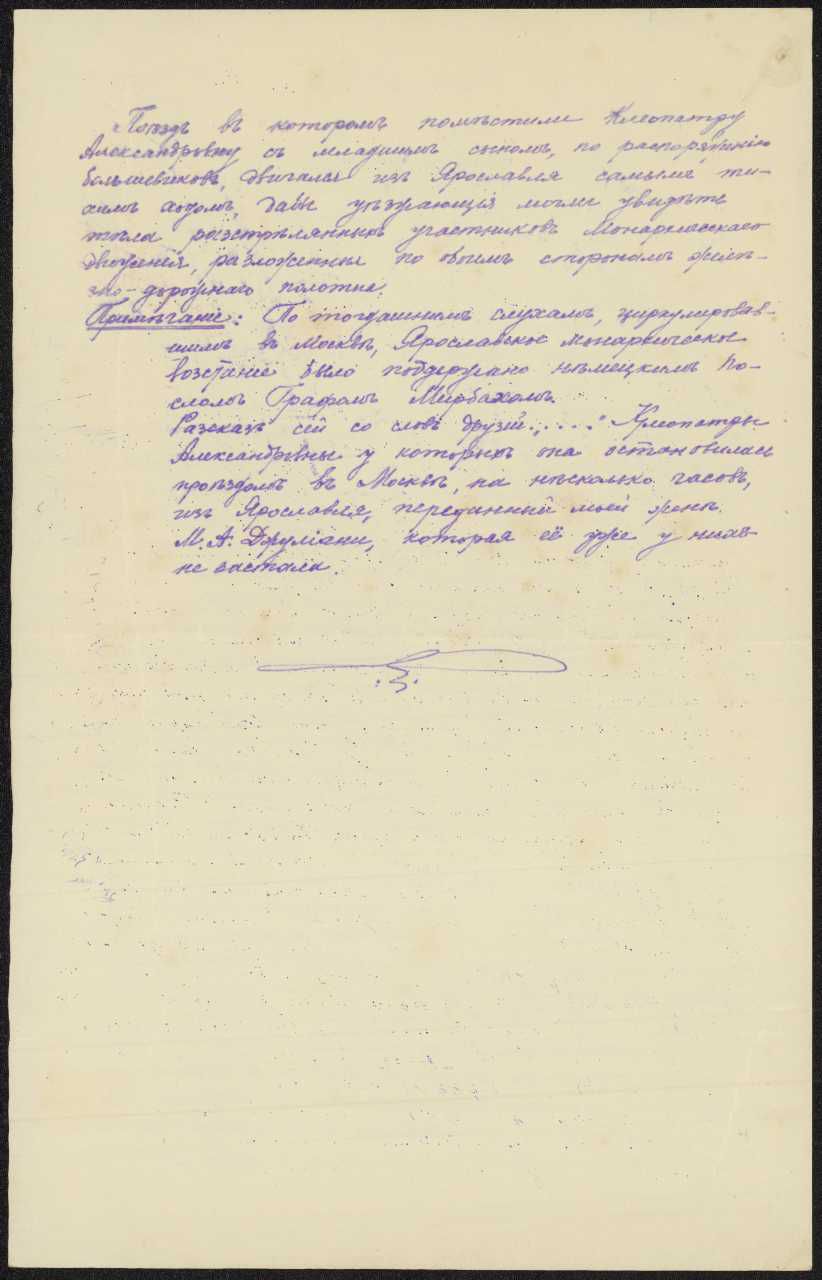 „Поѣздъ въ которомъ помѣстили Клеопатру
Александровну съ младшимъ сыномъ, по распоряженію
большевиковъ, двигался изъ Ярославля самымъ ти-
химъ ходомъ, дабы уѣзжающія могли увидѣть
тѣла разстрѣлянныхъ участниковъ Монархическаго
движенія, разложенныя по обѣимъ сторонамъ желѣ-
зно-дорожнаго полотна.
Примѣчаніе: По тогдашнимъ слухамъ, циркулировав-
шимъ въ Москвѣ, Ярославское монархическое
возстаніе было поддержано нѣмецкимъ По-
сломъ Графомъ Мирбахомъ.
Разсказъ сей со словъ друзей „....“ Клеопатры
Александровны у которыхъ она остановилась
проѣздомъ въ Москвѣ, на нѣсколько часовъ,
изъ Ярославля, переданный моей женѣ
М. А. Джуліани, которая её уже у нихъ
не застала.